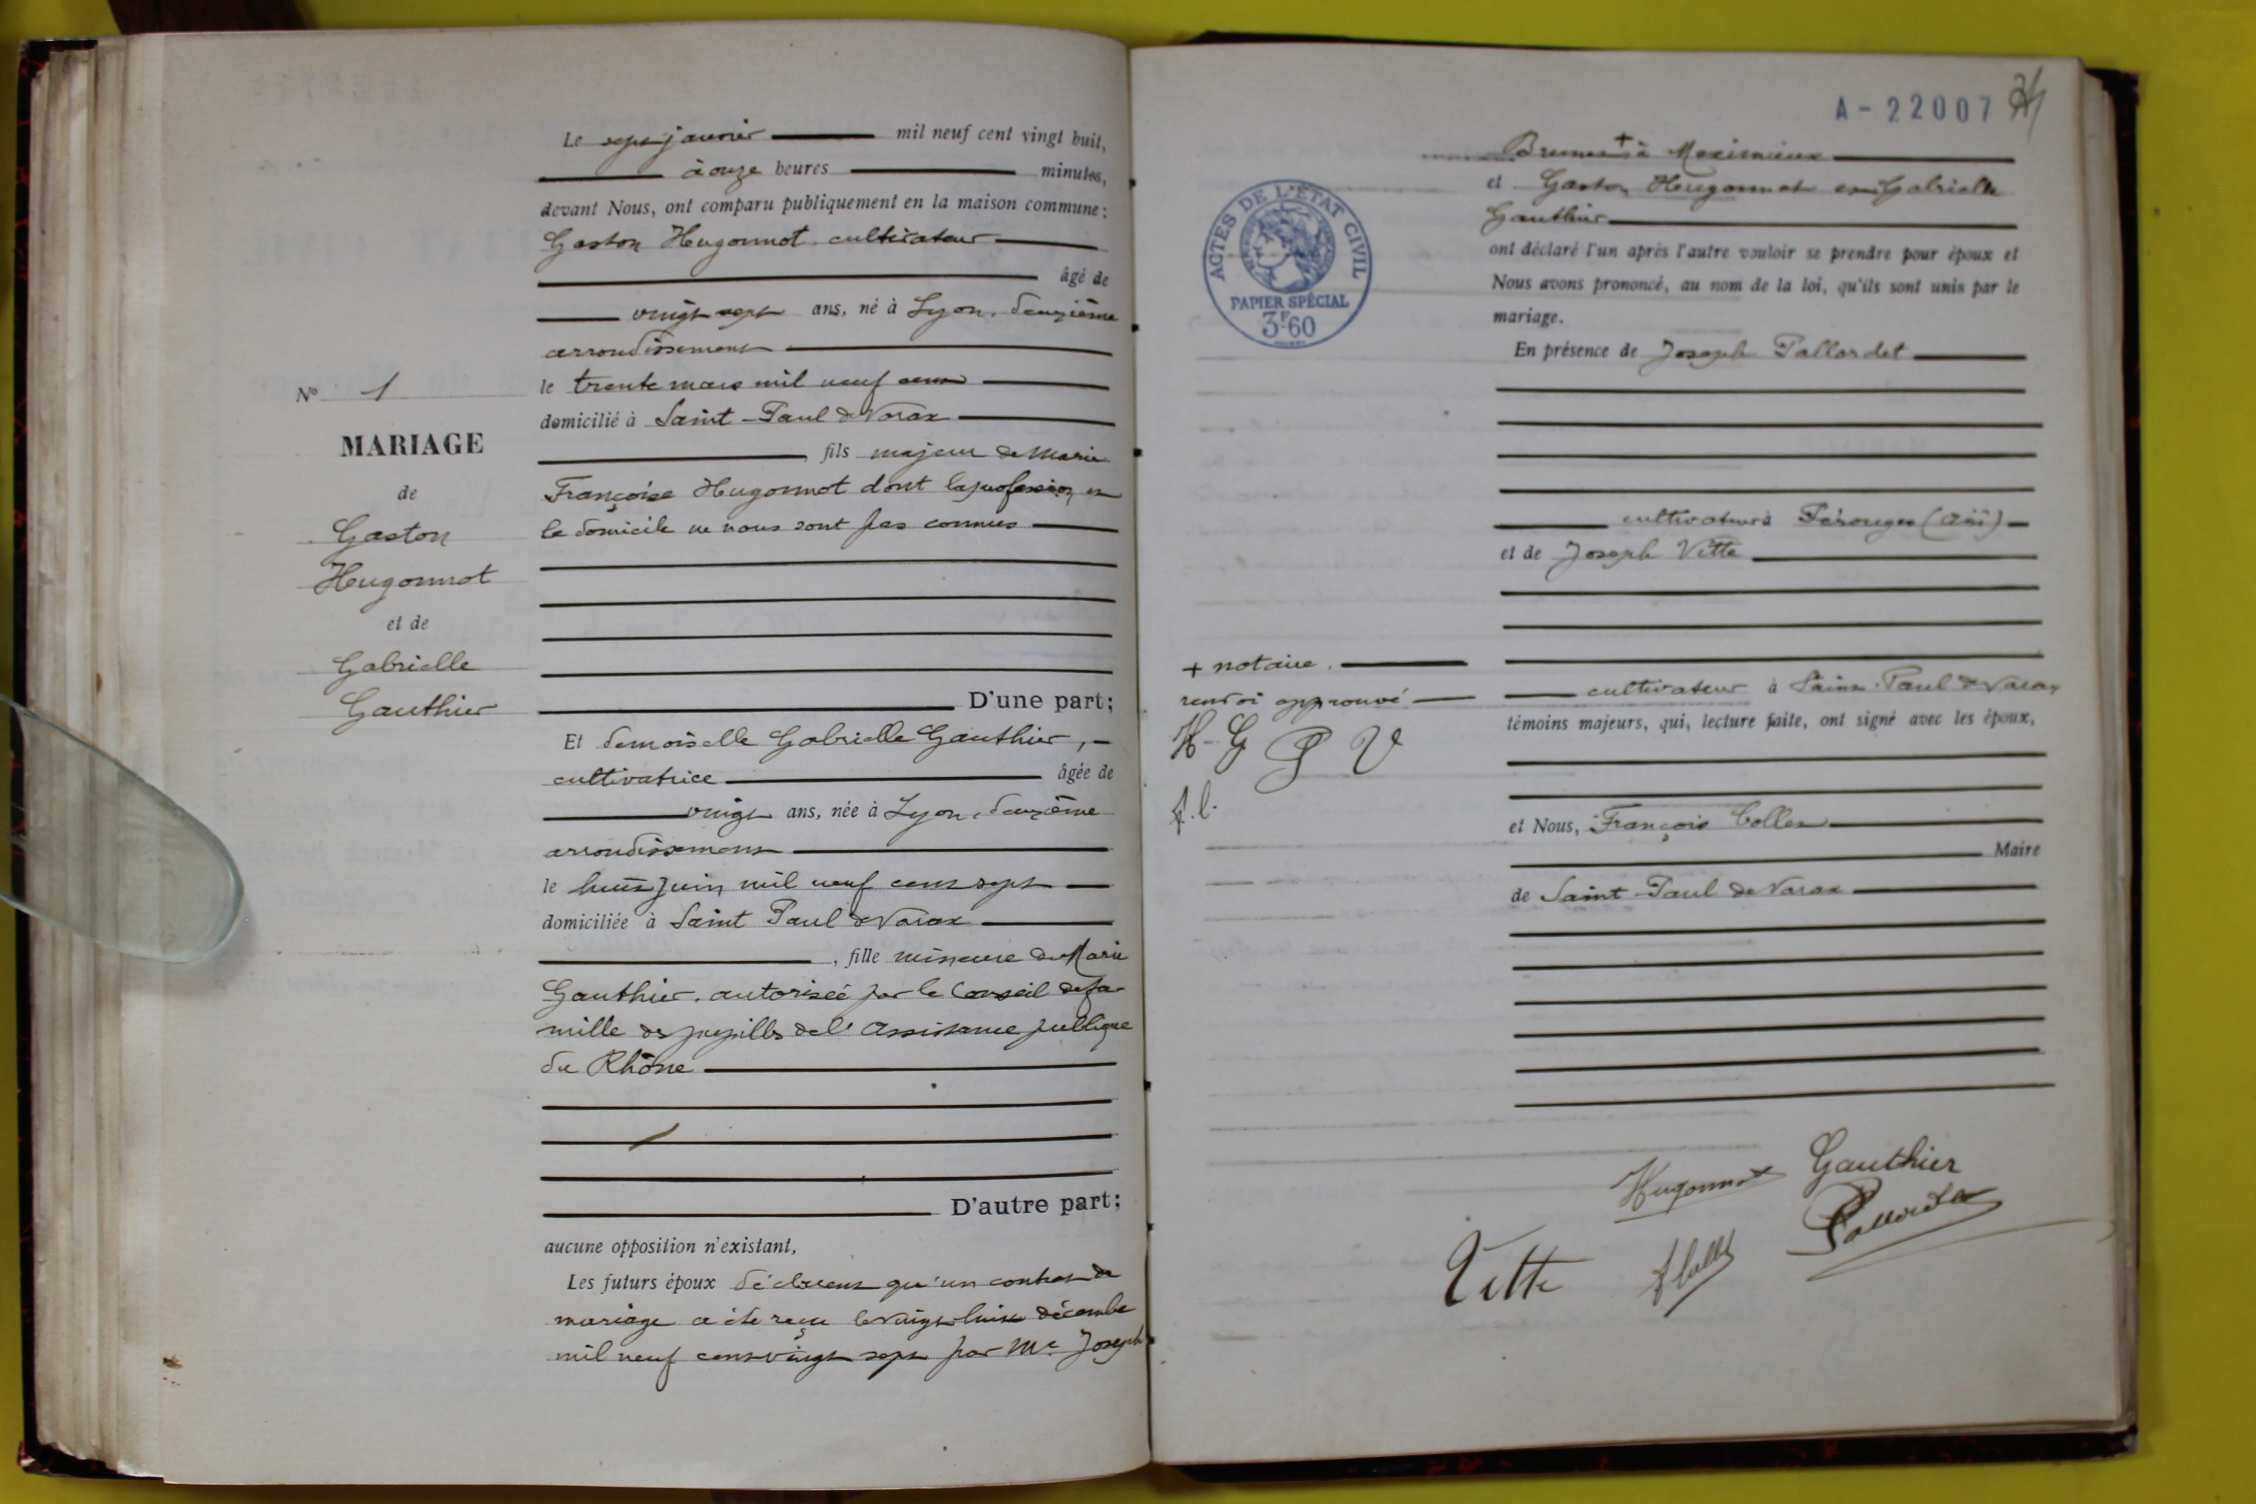 Le sept janvier mil neuf cent vingt huit,
à onze heures minutes,
devant Nous, ont comparu publiquement en la maison commune :
Gaston Hugonnot cultivateur
âgé de
vingt sept ans, né à Lyon, deuxième
arrondissement
le trente mars mil neuf cent
domicilié à Saint-Paul de Varax
, fils majeur de Marie
Françoise Hugonnot dont la profession et
le domicile ne nous sont pas connus
D'une part;
Et demoiselle Gabrielle Gauthier,
cultivatrice âgée de
vingt ans, née à Lyon, deuxième
arrondissement
le huit juin mil neuf cent sept
domiciliée à Saint Paul de Varax
, fille mineure de Marie
Gauthier, autorisée par le Conseil de fa-
mille des pupilles de l'Assistance publique
du Rhône
D'autre part;
aucune opposition n'existant,
Les futurs époux déclarent qu'un contrat de
mariage a été reçu le vingt-huit décembre
mil neuf cent vingt sept par Me Joseph
No 1
MARIAGE
de
Gaston
Hugonnot
et de
Gabrielle
Gauthier
A-22007
+ à Meximieux
et Gaston Hugonnot et Gabrielle
Gauthier
ont déclaré l'un après l'autre vouloir se prendre pour époux et
Nous avons prononcé, au nom de la loi, qu'ils sont unis par le
mariage.
En présence de Joseph Pallordet
cultivateur à Pérouges (Ain)
et de Joseph Vitte
cultivateur à Saint-Paul de Varax
témoins majeurs, qui, lecture faite, ont signé avec les époux,
et Nous, François Collet
Maire
de Saint-Paul de Varax
ACTES DE L'ÉTAT CIVIL
PAPIER SPÉCIAL
3F60
+ notaire.
renvoi approuvé
H-G P V
f.c.
Hugonnot Gauthier
Pallordet
Vitte